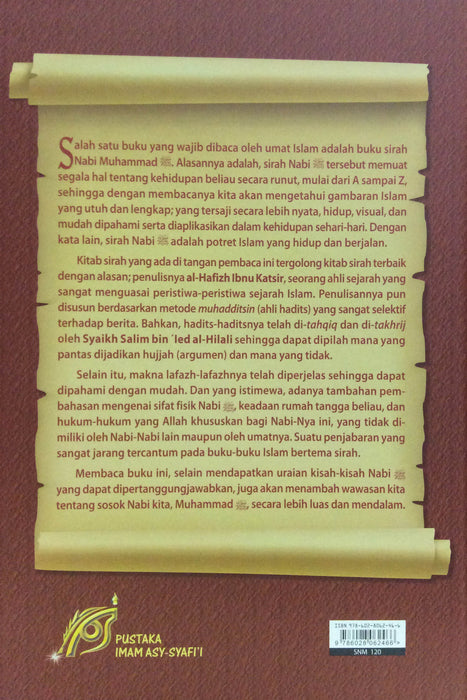 Salah satu buku yang wajib dibaca oleh umat Islam adalah buku sirah
Nabi Muhammad ﷺ. Alasannya adalah, sirah Nabi ﷺ tersebut memuat
segala hal tentang kehidupan beliau secara runut, mulai dari A sampai Z,
sehingga dengan membacanya kita akan mengetahui gambaran Islam
yang utuh dan lengkap; yang tersaji secara lebih nyata, hidup, visual, dan
mudah dipahami serta diaplikasikan dalam kehidupan sehari-hari. Dengan
kata lain, sirah Nabi ﷺ adalah potret Islam yang hidup dan berjalan.
Kitab sirah yang ada di tangan pembaca ini tergolong kitab sirah terbaik
dengan alasan; penulisnya al-Hafizh Ibnu Katsir, seorang ahli sejarah yang
sangat menguasai peristiwa-peristiwa sejarah Islam. Penulisannya pun
disusun berdasarkan metode muhadditsin (ahli hadits) yang sangat selektif
terhadap berita. Bahkan, hadits-haditsnya telah di-tahqiq dan di-takhrij
oleh Syaikh Salim bin ´Ied al-Hilali sehingga dapat dipilah mana yang
pantas dijadikan hujjah (argumen) dan mana yang tidak.
Selain itu, makna lafazh-lafazhnya telah diperjelas sehingga dapat
dipahami dengan mudah. Dan yang istimewa, adanya tambahan pem-
bahasan mengenai sifat fisik Nabi ﷺ, keadaan rumah tangga beliau, dan
hukum-hukum yang Allah khususkan bagi Nabi-Nya ini, yang tidak di-
miliki oleh Nabi-Nabi lain maupun oleh umatnya. Suatu penjabaran yang
sangat jarang tercantum pada buku-buku Islam bertema sirah.
Membaca buku ini, selain mendapatkan uraian kisah-kisah Nabi ﷺ
yang dapat dipertanggungjawabkan, juga akan menambah wawasan kita
tentang sosok Nabi kita, Muhammad ﷺ, secara lebih luas dan mendalam.
PUSTAKA
IMAM ASY-SYAFI'I
ISBN 978-602-8062-46-6
9 786028 062466
SNM 120